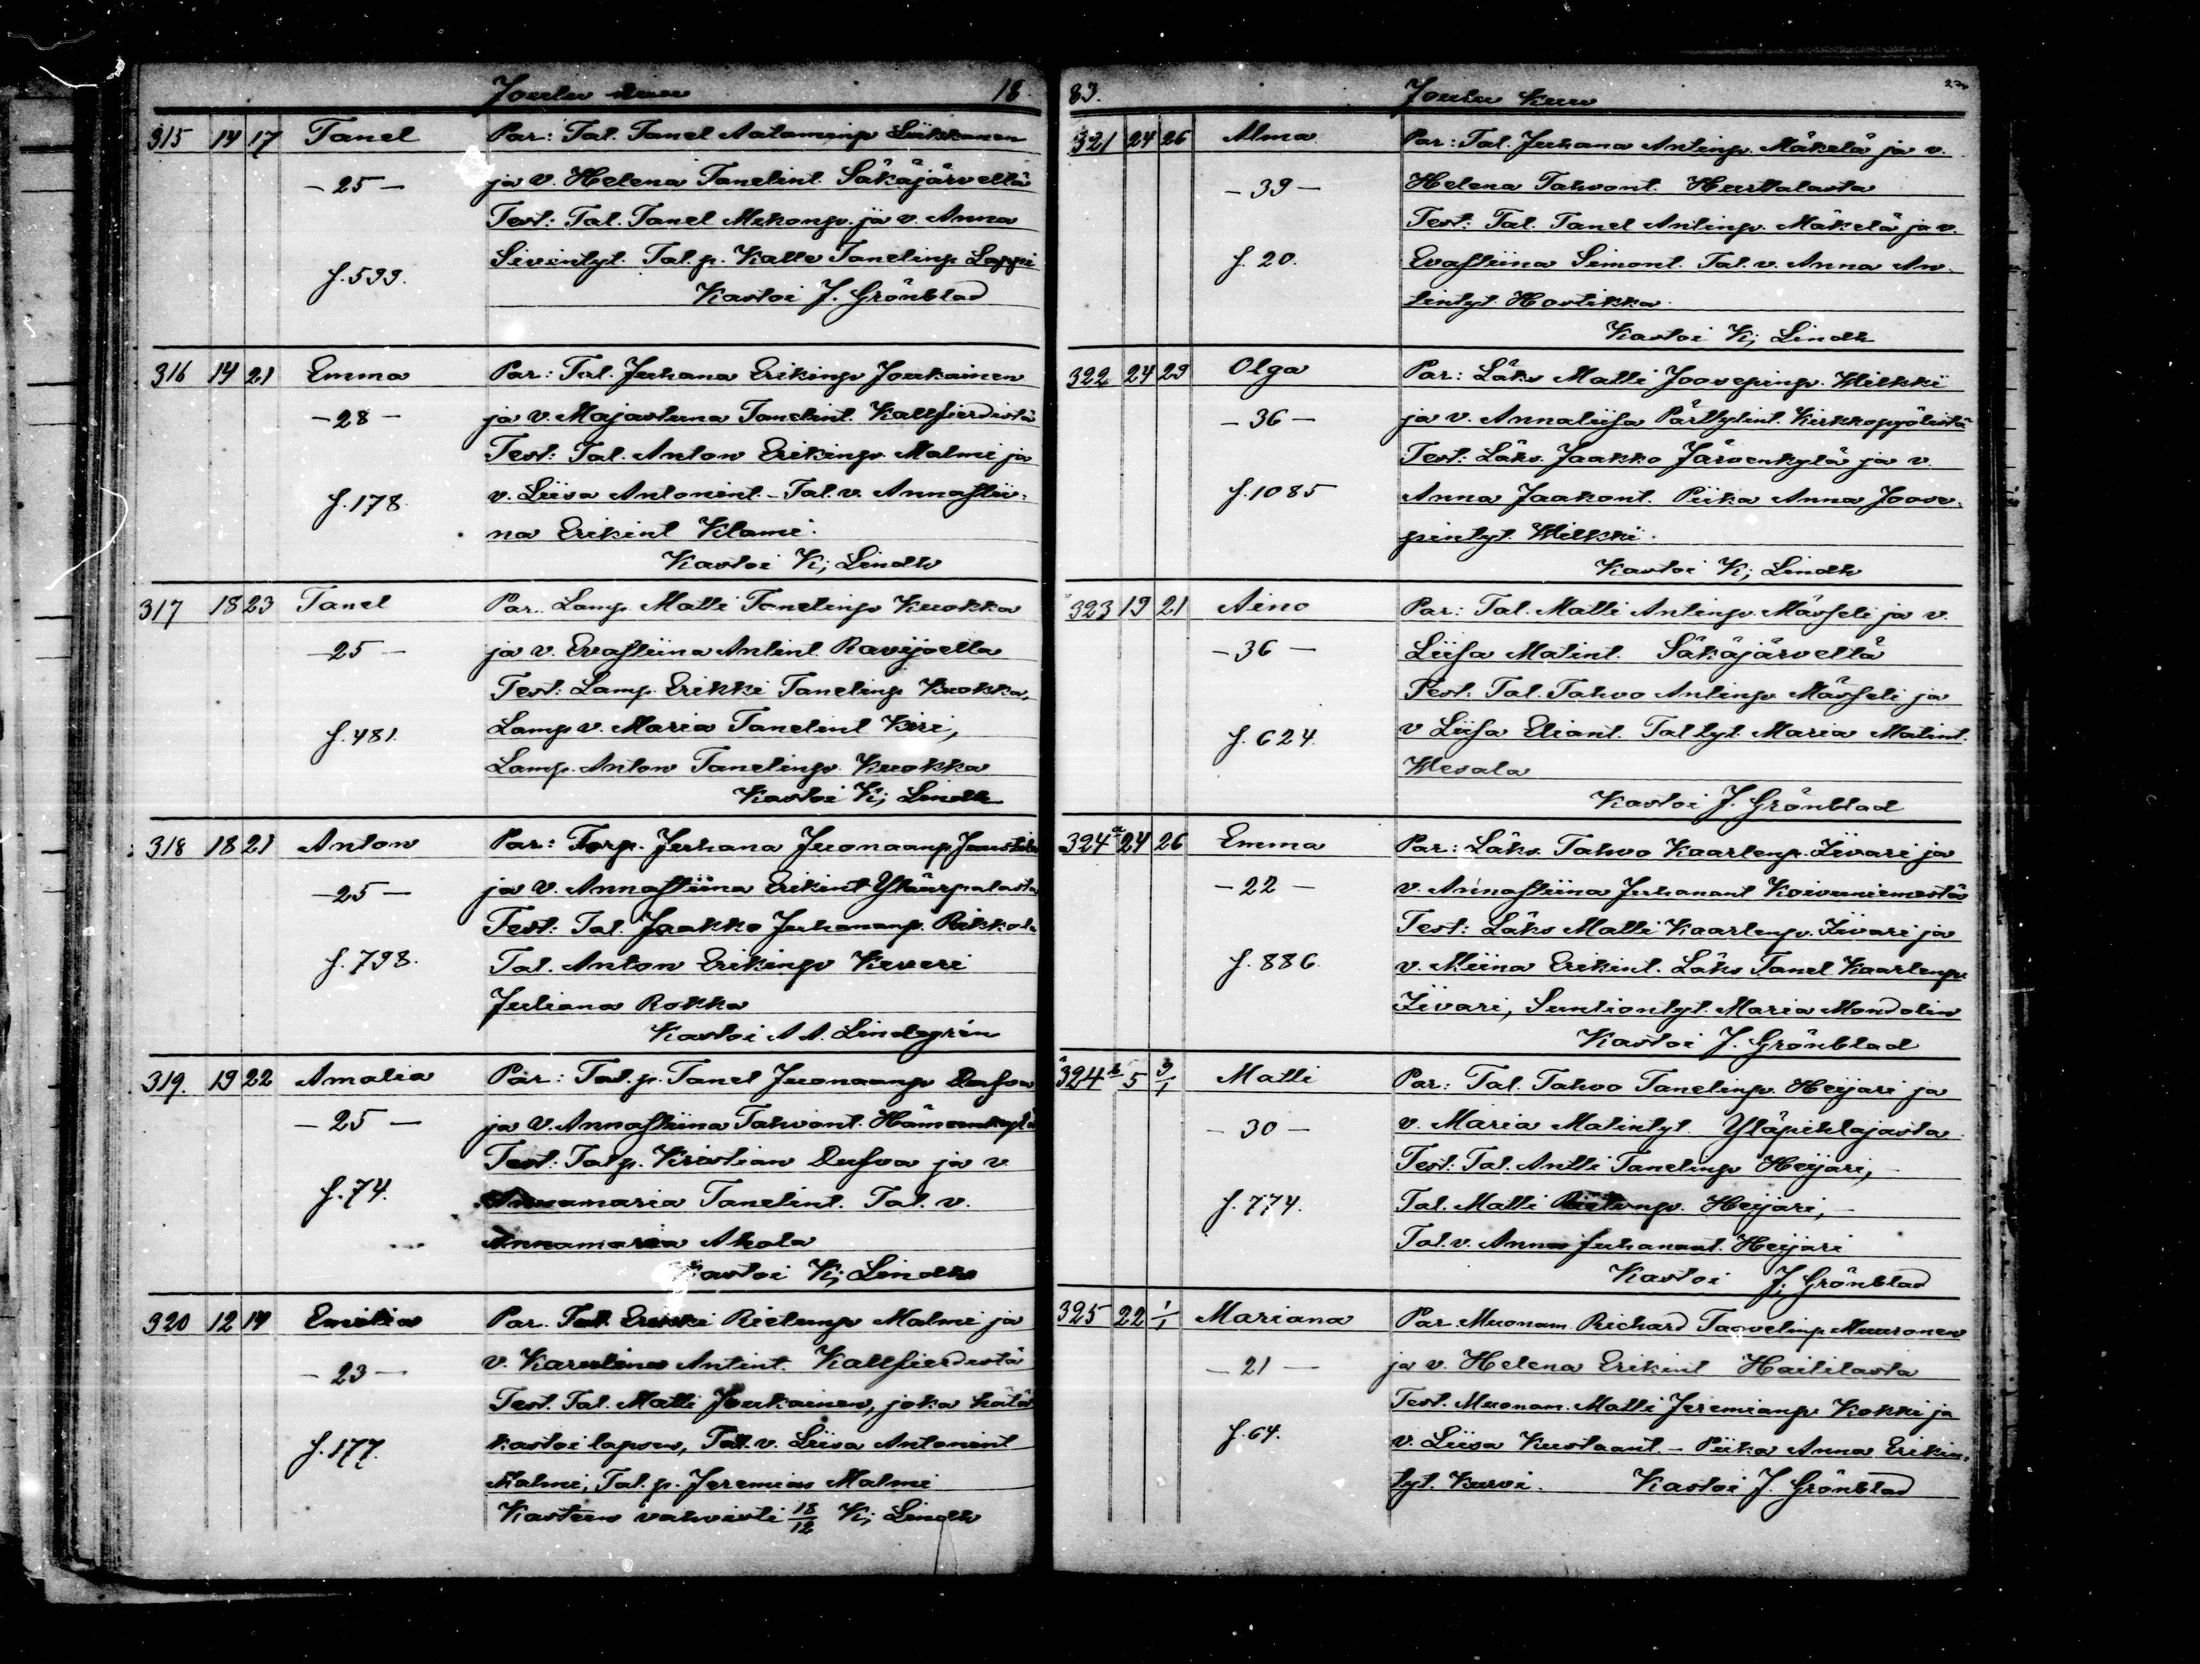 Joulu kuu 18
315 14 17 Tanel Par: Tal. Tanel Aataminp Liikkanen
- 25 - ja v. Helena Tanelint. Säkäjärveltä
Test: Tal. Tanel Mikonp. ja v. Anna
f. 599. Tal. p. Kalle Tanelinp Lappi
Kastoi J. Grönblad
316 14 21 Emma Par: Tal. Juhana Erikinp Joukainen
- 28 - ja v. Majastiina Tanelint. Kallfierdistä
Test: Tal. Anton Erikinp. Malmi ja
f. 178. v. Liisa Antonint. - Tal. v. Annastii-
na Erikint Klami.
Kastoi K; Lindh
317 18 23 Tanel Par. Lamp. Matti Tanelinp Kuokka
- 25 - ja v. Evastiina Antint. Ravijoella
Test: Lamp. Erikki Tanelinp Kuokka,
f. 481. Lamp v. Maria Tanelint Kiri,
Lamp. Anton Tanelinp. Kuokka
Kastoi K; Lindh
318 18 21 Anton Par: Torp. Juhana Juonaanp
- 25 - ja v. Annastiina Erikint Yläürpalasta
Test: Tal. Jaakko Juhananp. Rikkola
f. 798. Tal. Anton Erikinp Keveri
Juliana Rokka
Kastoi A A. Lindegrén
319. 19 22 Amalia Par: Tal. p. Tanel Juonaanp Dufva
- 25 - ja v. Annastiina Tahvont. Hämeenkylä
Test: Tal p. Kristian Dufva ja v
f. 74. Annamaria Tanelint. Tal. v.
Annamaria Ahola
Kastoi K; Lindh
320 12 14 Emilia Par. Tal. Erikki Rietunp Malmi ja
- 23 - v. Karulina Antint. Kallfierdistä
Test. Tal. Matti Joukainen, joka hätä
f. 177. kastoi lapsen, Tal. v. Liisa Antonint
Malmi, Tal. p. Jeremias Malmi
Kasteen vahvisti 18/12 K; Lindh
83. Joulu Kuu
321 24 26 Alma Par: Tal. Juhana Antinp. Mäkelä ja v.
- 39 - Helena Tahvont. Hurttalasta
Test: Tal. Tanel Antinp. Mäkelä ja v.
f. 20. Evastiina Simont. Tal. v. Anna An-
tintyt. Hostikka.
Kastoi K; Lindh
322 24 29 Olga Par: Läks Matti Joosepinp. Wilkki
- 36 - ja v. Annaliisa Pärttylint. Kirkkopyölistä
Test: Läks. Jaakko Järvenkylä ja v.
f. 1085 Anna Jaakont. Piika Anna Joose-
pintyt. Wilkki.
Kastoi K; Lindh
323 19 21 Aino Par: Tal. Matti Antinp. Mässeli ja v.
- 36 - Liisa Matint. Säkäjärveltä
Test: Tal. Tahvo Antinp Mässeli ja
f. 624. v Liisa Eliant. Tal tyt. Maria Matint.
Wesala
Kastoi J. Grönblad
324 a 24 26 Emma Par: Läks. Tahvo Kaarlenp. Iivari ja
- 22 - v. Annastiina Juhanant Koivuniemestä
Test: Läks Matti Kaarlenp. Iivari ja
f. 886. v. Miina Erikint. Läks Tanel Kaarlenp.
Iivari, Suntiontyt. Maria Mandolin
Kastoi J. Grönblad
324 b 5 9/1 Matti Par: Tal. Tahvo Tanelinp. Heijari ja
- 30 - v. Maria Matintyt. Yläpihlajasta
Test: Tal. Antti Tanelinp Heijari,
f. 774. Tal. Matti Heijari,
Tal. v. Anna Juhanant. Heijari
Kastoi J; Grönblad
325 22 1/1 Mariana Par. Muonam. Richard Taavelinp Muuronen
- 21 - ja v. Helena Erikint Haitilasta
Test. Muonam. Matti Jeremianp. Kokki ja
f. 64. v. Liisa Kustaant. - Piika Anna Erikin-
tyt. Kurvi. Kastoi J. Grönblad